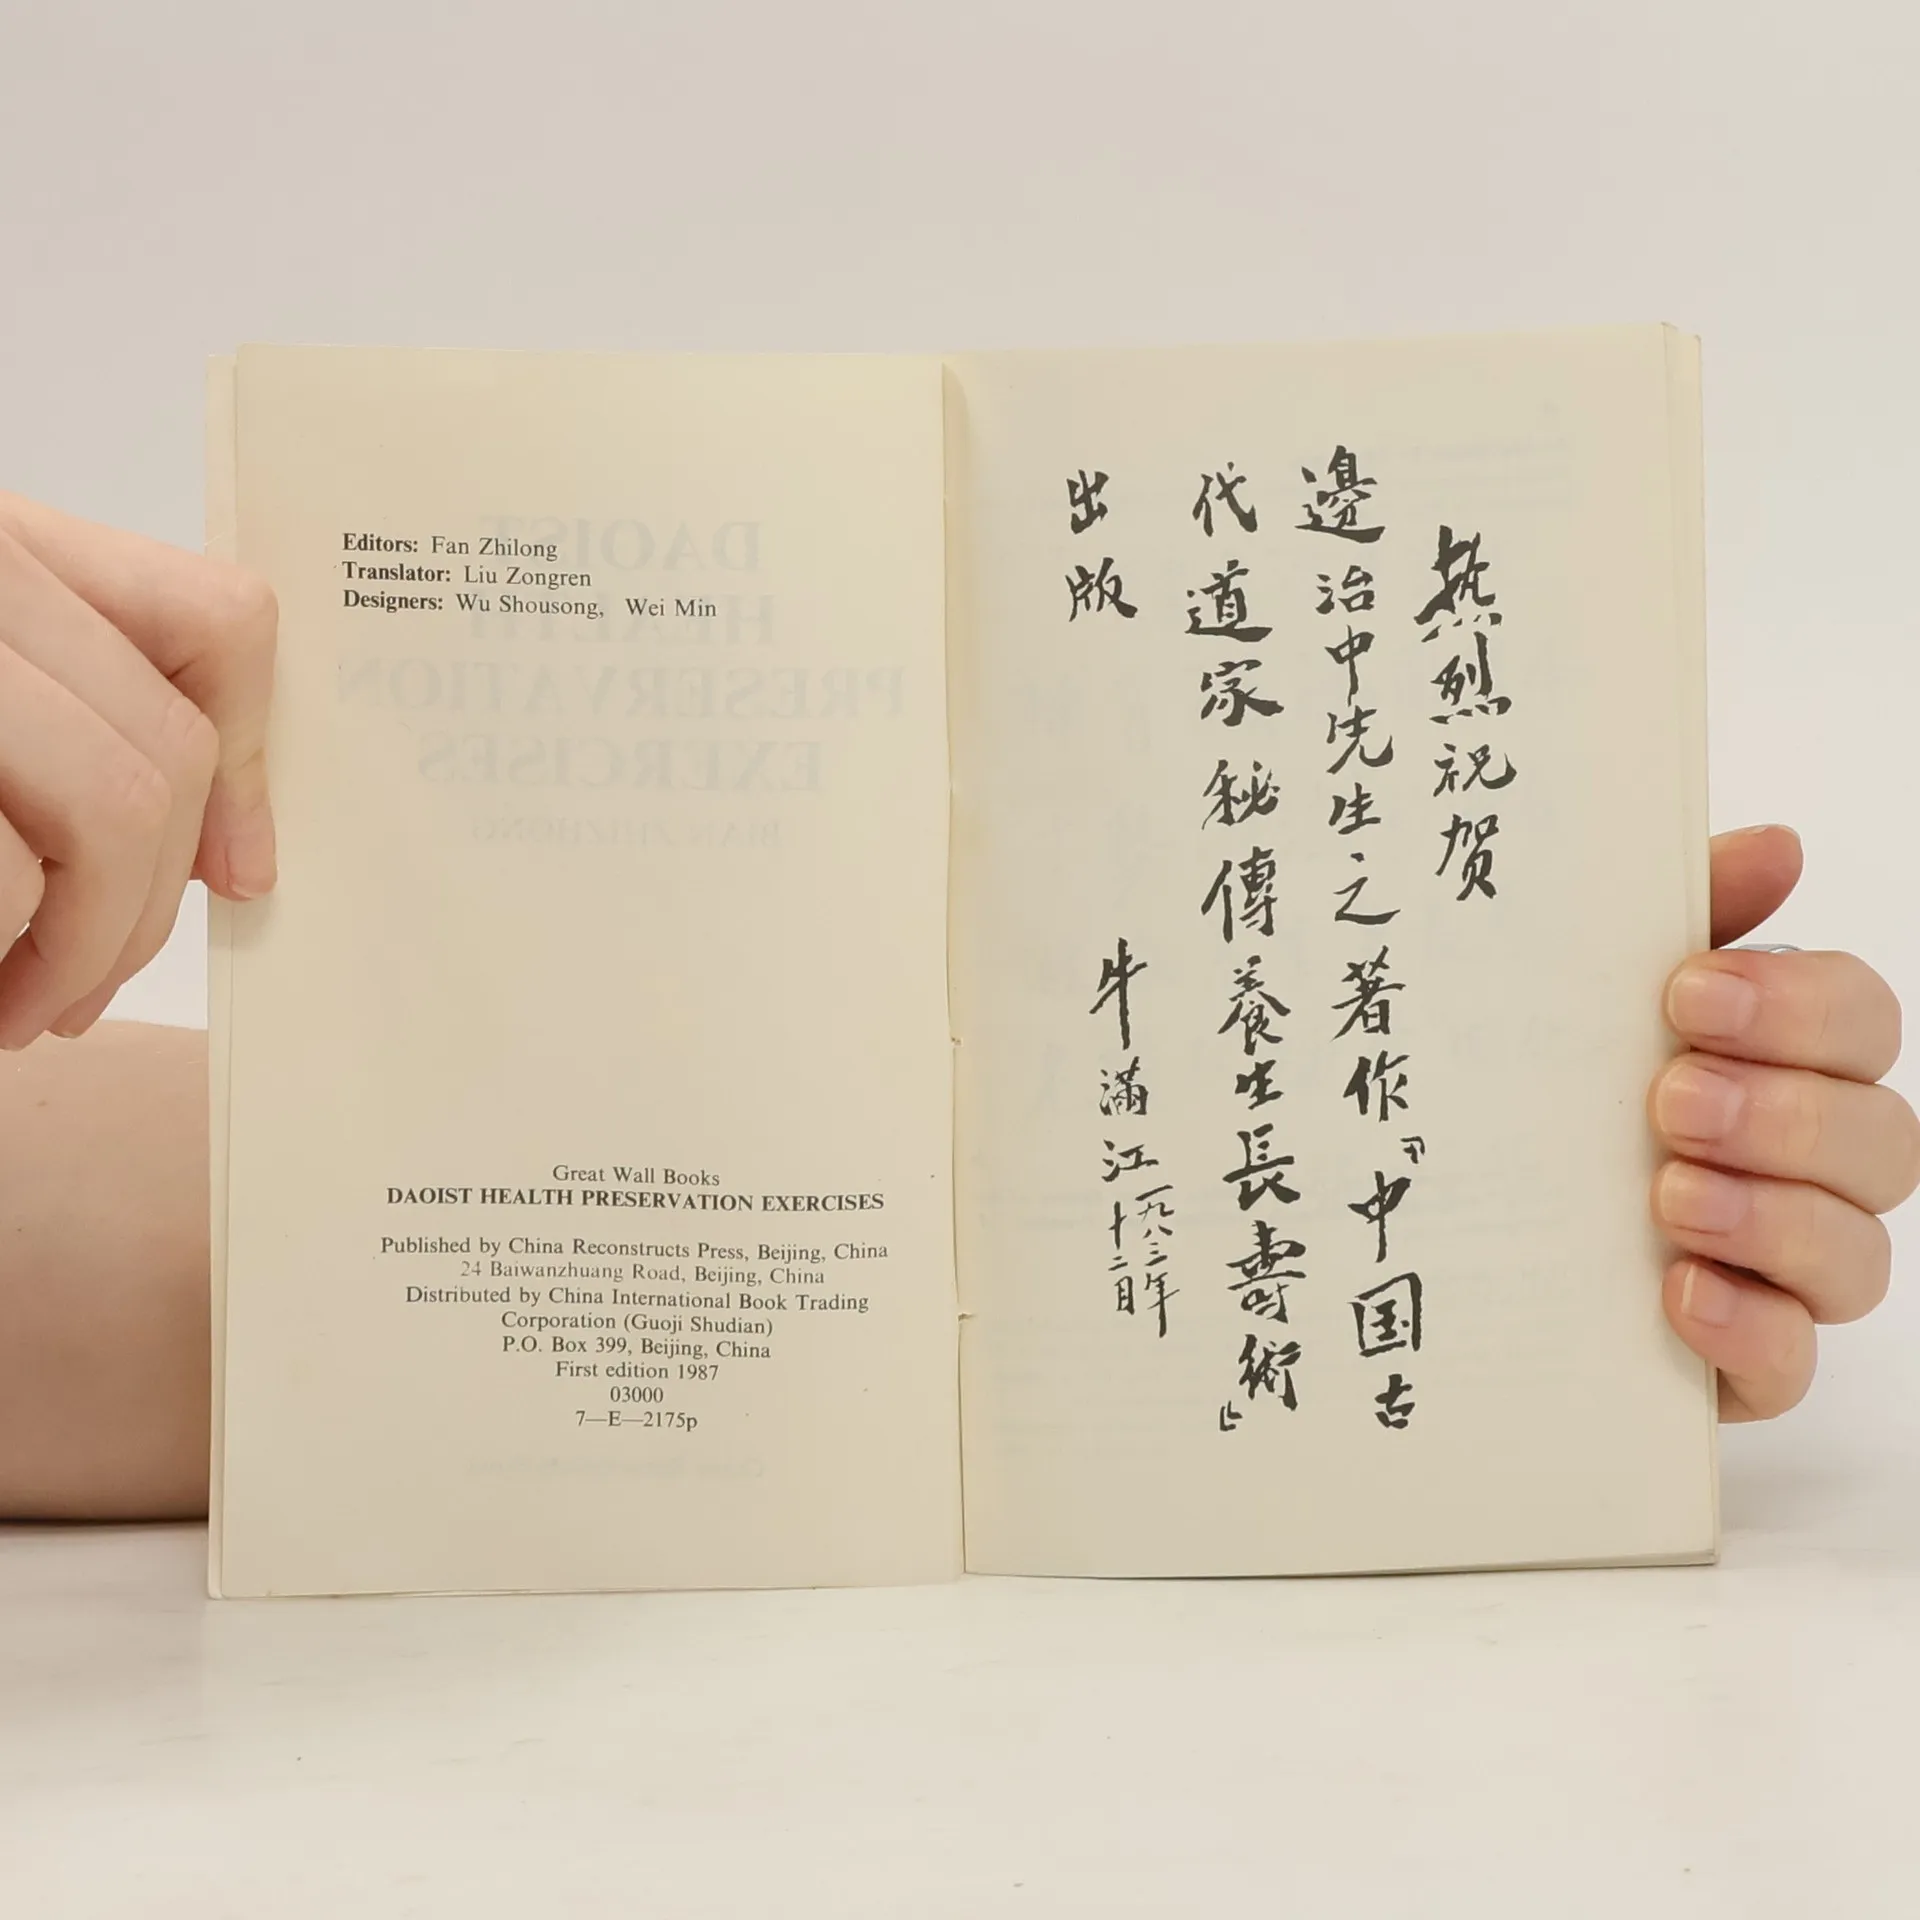 Editors: Fan Zhilong
Translator: Liu Zongren
Designers: Wu Shousong, Wei Min
Great Wall Books
DAOIST HEALTH PRESERVATION EXERCISES
Published by China Reconstructs Press, Beijing, China
24 Baiwanzhuang Road, Beijing, China
Distributed by China International Book Trading
Corporation (Guoji Shudian)
P.O. Box 399, Beijing, China
First edition 1987
03000
7—E—2175p
热烈祝贺
邊治中先生之著作『中国古
代道家秘傳養生長壽術』
出版
牛滿江
一九八三年
十二月